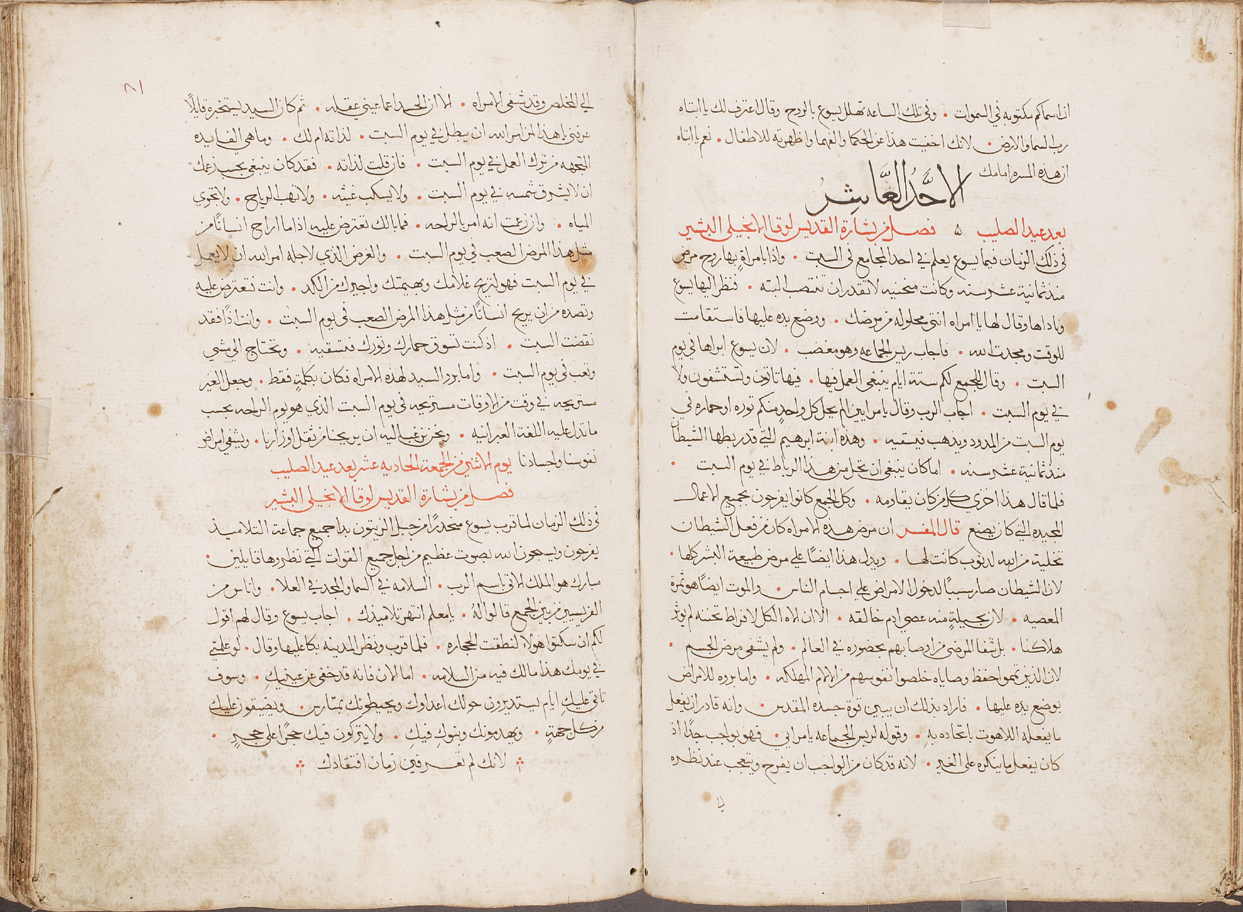 ان اسماكم مكتوبه في السموات . وفي تلك الساعه تهلل يسوع بالروح وقال اعترف لك يا ابتاه
رب السما والارض . لانك اخفيت هذا عن الحكما والفهما واظهرته للاطفال . نعم يا ابتاه
ان هذه المسره امامك
الاحد العاشر
بعد عيد الصليب ه فصل من بشارة القديس لوقا الانجيلي البشير
في ذلك الزمان فيما يسوع يعلم في احد المجامع في السبت . واذا بامراةٍ بها روح مرض
منذ ثمانية عشر سنه وكانت منحنيه لا تقدر ان تنتصب البته . فنظر اليها يسوع
وناداها وقال لها يا امراه انتي محلوله من مرضك . ووضع يده عليها فاستقامت
للوقت ومجدت الله . فاجاب ريس الجماعه وهو مغضب . لان يسوع ابراها في يوم
السبت . وقال للجمع لكم ستة ايام ينبغي العمل فيها . فيها تاتون وتستشفون ولا
في يوم السبت . اجاب الرب وقال يا مرايين الم يحل كل واحدٍ منكم ثوره او حماره في
يوم السبت من المدود ويذهب فيسقيه . وهذه ابنة ابرهيم التي قد ربطها الشيطان
منذ ثمانية عشر سنه . اما كان ينبغي ان تحل من هذا الرباط في يوم السبت .
فلما قال هذا اخزى كل من كان يقاومه . وكل الجميع كانوا يفرحون بجميع الاعمال
المجيده التي كان يصنع قال المفسر ان مرض هذه الامراه كان من فعل الشيطان
تخلية من الله لذنوب كانت لها . ويدل هذا ايضًا على مرض طبيعة البشر كلها .
لان الشيطان صار سببًا لدخول الامراض على اجسام الناس . والموت ايضًا هو ثمرة
المعصيه . لان بحيلةٍ منه عصى ادم خالقه . الا ان الاه الكل لافراط تحننه لم يوثر
هلاكنا . بل شفا المرضى من اوصابهم بحضوره في العالم . ولم يشفي مرض الجسم .
لان الذين تمموا حفظ وصاياه خلصوا نفوسهم من الالام المهلكه . واما بروه للامراض
بوضع يده عليها . فاراد بذلك ان يبين قوة جسده المقدس . وانه قادر ان يفعل
ما يفعله اللاهوت باتحاده به . وقوله لريس الجماعه يا مرايي . فهو بواجب جدًا اذ
كان يفعل ما ينكره على الغير . لانه قد كان من الواجب ان يفرح ويتعجب عند نظره
الي المخلص وقد شفى الامراه . الا ان الحسد اعما عيني عقله . ثم كان السيد يستخبره قايلًا
عرفني يا هذا الامر امر الله ان يبطل في يوم السبت . لذاته ام لك . وما هي الفايده
المتجهه من ترك العمل في يوم السبت . فان قلت لذاته . فقد كان ينبغي بحسب زعمك
ان لا يشرق شمسه في يوم السبت . ولا يسكب غيثه . ولا تهب الرياح . ولا تجري
المياه . وان زعمت انه امر بالراحه . فما بالك تعترض عليه اذا ما اراح انسانًا من
مثل هذا المرض الصعب في يوم السبت . والغرض الذي لاجله امر الله ان لا يعمل
في يوم السبت فهو لتريح غلامك وبهيمتك واجيرك من الكد . وانت تعترض عليه
وتصده من ان يريح انسانًا من مثل هذا المرض الصعب في يوم السبت . وانت اذًا فقد
نقضت السبت . اذ كنت تسوق حمارك وثورك فتسقيه . وتحتاج الي مشي
وتعب في يوم السبت . واما برو السيد لهذه الامراه فكان بكلمةٍ فقط . وجعل الغير
مستريحه في وقت من الاوقات مستريحه في يوم السبت الذي هو يوم الراحه بحسب
ما تدل عليه اللغة العبرانيه . ونحن نرغب اليه ان يريحنا من ثقل اوزارنا . ويشفي امراض
نفوسنا واجسادنا يوم الاثنين من الجمعة الحاديه عشر بعد عيد الصليب
فصل من بشارة القديس لوقا الانجيلي البشير
في ذلك الزمان لما قرب يسوع منحدرًا من جبل الزيتون بدا جميع جماعة التلاميذ
يفرحون ويسبحون الله بصوت عظيم من اجل جميع القوات التي نظروها قايلين .
مبارك هو الملك الاتي باسم الرب . السلامه في السما والمجد في العلا . واناس من
الفريسيين من بين الجميع قالوا له . يا معلم انتهر تلاميذك . اجاب يسوع وقال لهم اقول
لكم ان سكتوا هولاء لنطقت الحجاره . فلما قرب ونظر المدينه بكا عليها وقال . لو علمتي
في يومك هذا ما لك فيه من السلامه . اما الان فانه قد خفي عن عينيك . وسوف
تاتي عليك ايام يستديرون حولك اعداوك ويحيطونك بمتارس . ويضيقون عليك
من كل جهةٍ . ويهدمونك وبنوك فيك . ولا يتركون فيك حجرًا على حجرٍ .
لانك لم تعرفي زمان افتقادك
٨١